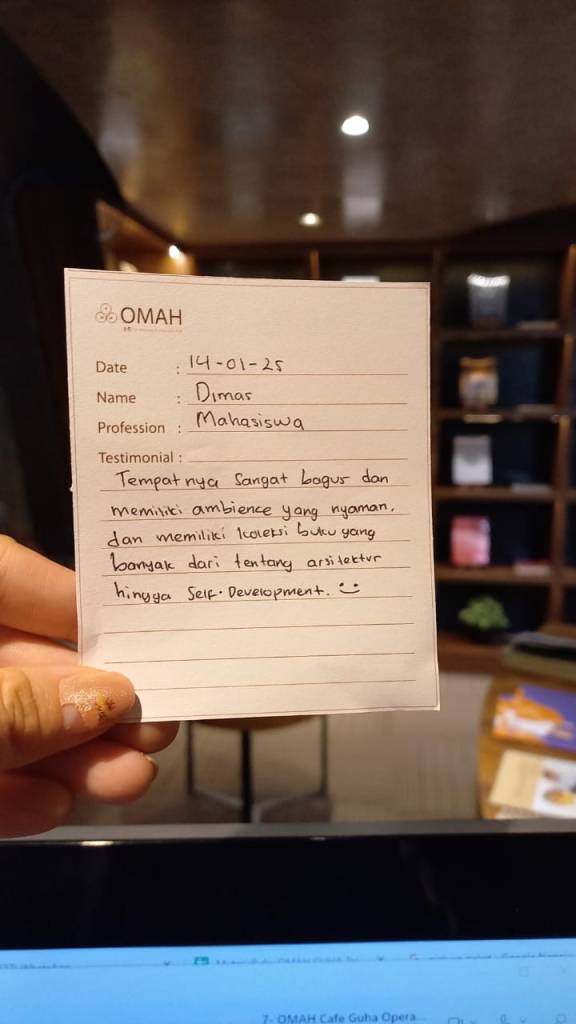 OMAH
Date : 14-01-25
Name : Dimas
Profession : Mahasiswa
Testimonial :
Tempatnya sangat bagus dan
memiliki ambience yang nyaman.
dan memiliki koleksi buku yang
banyak dari tentang arsitektur
hingga Self-Development. :)
7- OMAH Cafe Guha Opera...